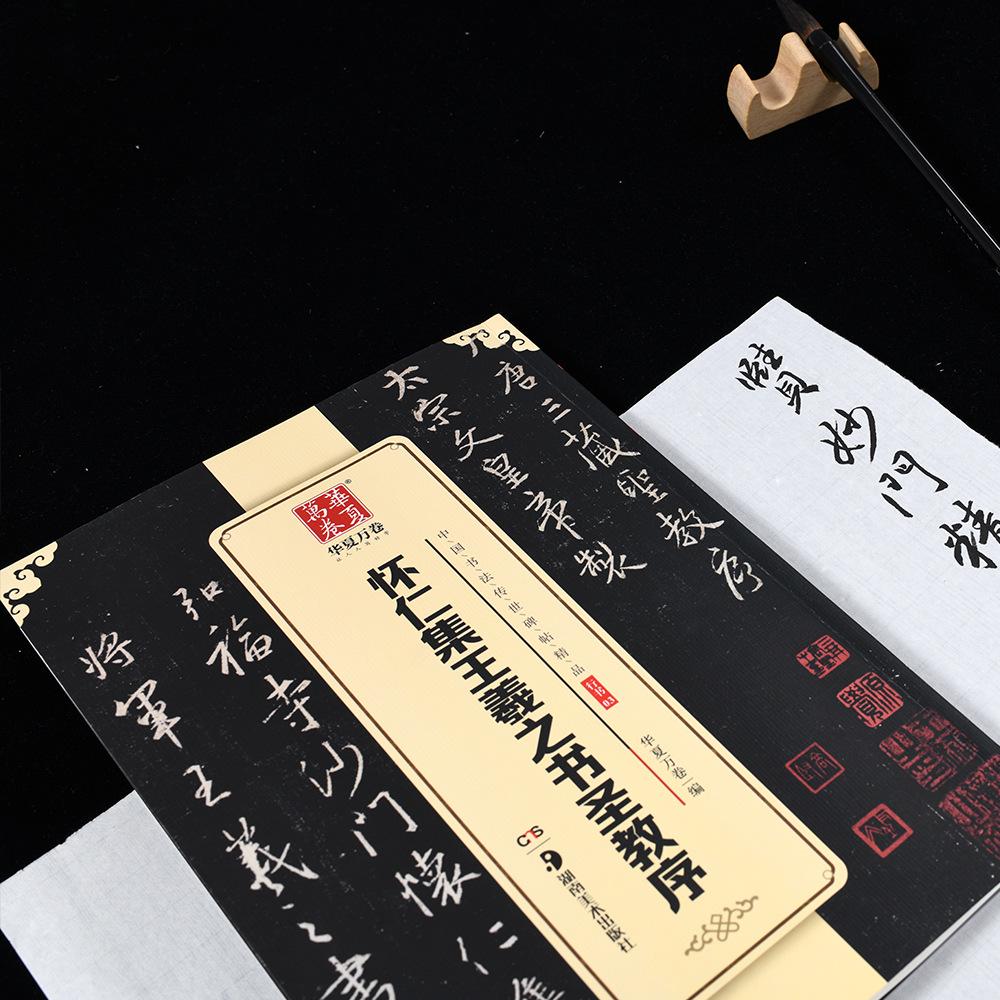 唐三藏聖教序
太宗文皇帝製
華夏萬卷
华夏万卷
中国书法传世碑帖精品
行书03
华夏万卷 编
怀仁集王羲之书圣教序
湖南美术出版社
弘福寺沙門懷仁集
將軍王羲之書
賢妙門精